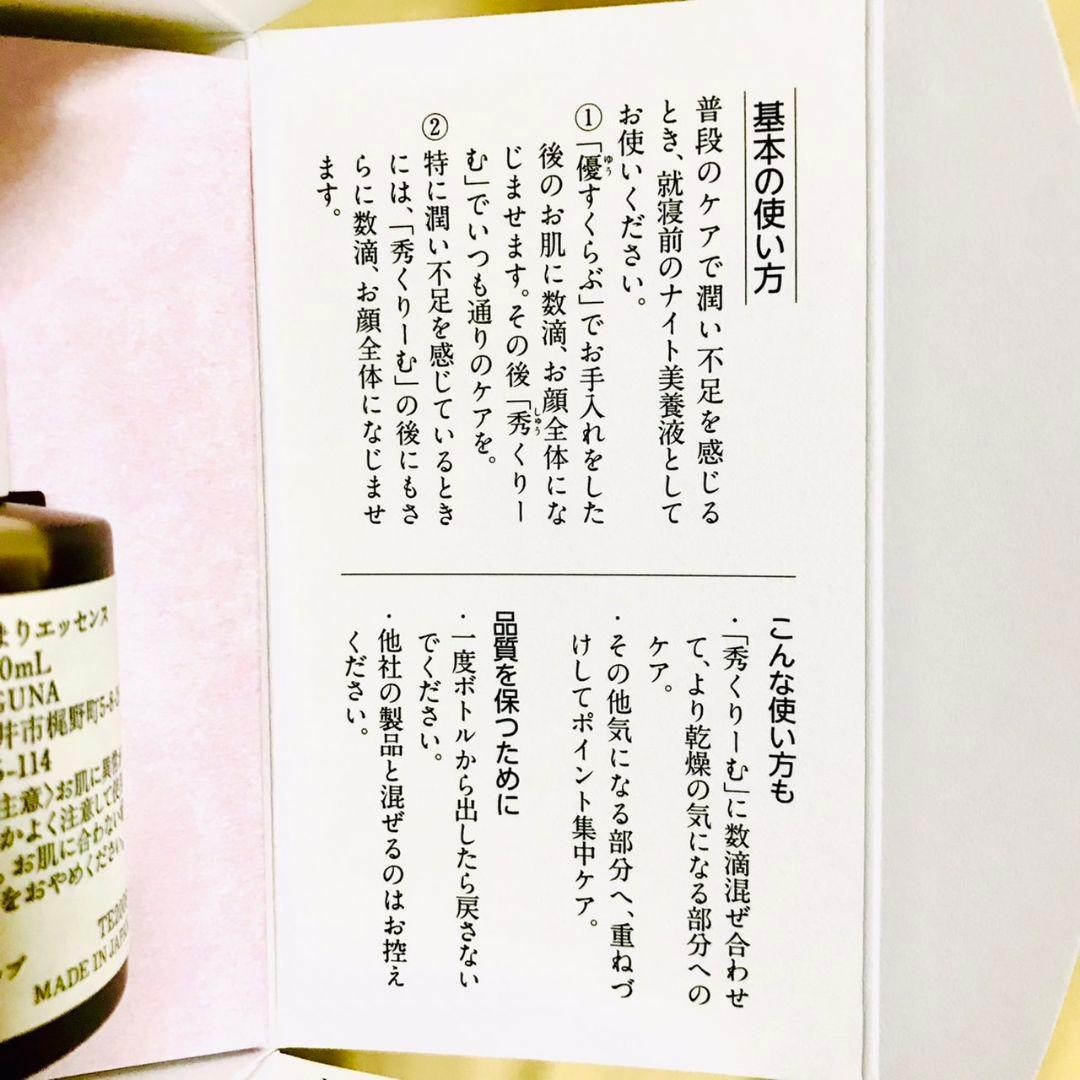 基本の使い方
普段のケアで潤い不足を感じる
とき、就寝前のナイト美養液として
お使いください。
①「優すくらぶ」でお手入れをした
ゆう
後のお肌に数滴、お顔全体にな
じませます。その後「秀くりー
しゅう
む」でいつも通りのケアを。
②特に潤い不足を感じているとき
には、「秀くりーむ」の後にもさ
らに数滴、お顔全体になじませ
ます。
こんな使い方も
・「秀くりーむ」に数滴混ぜ合わせ
て、より乾燥の気になる部分への
ケア。
・その他気になる部分へ、重ねづ
けしてポイント集中ケア。
品質を保つために
・一度ボトルから出したら戻さない
でください。
・他社の製品と混ぜるのはお控え
ください。
まりエッセンス
0mL
GUNA
井市梶野町5-8-
5-114
注意〉お肌に異常が
かよく注意して使
。お肌に合わない
をおやめください。
MADE IN JAPA